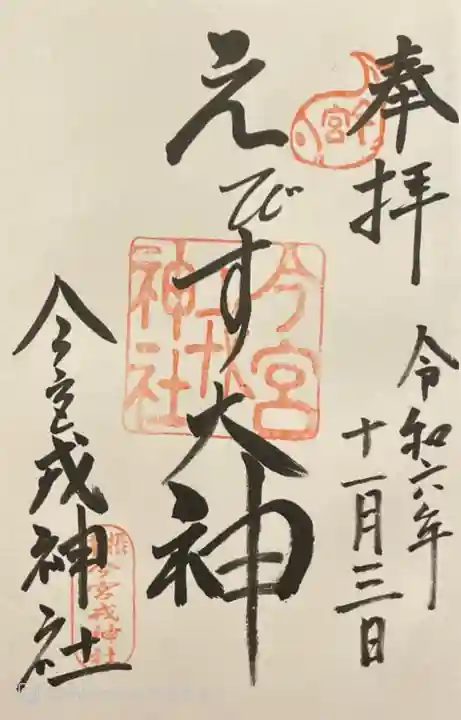 奉拝
令和六年
十一月三日
えびす大神
今宮戎神社
今宮
今宮戎神社
今宮戎神社